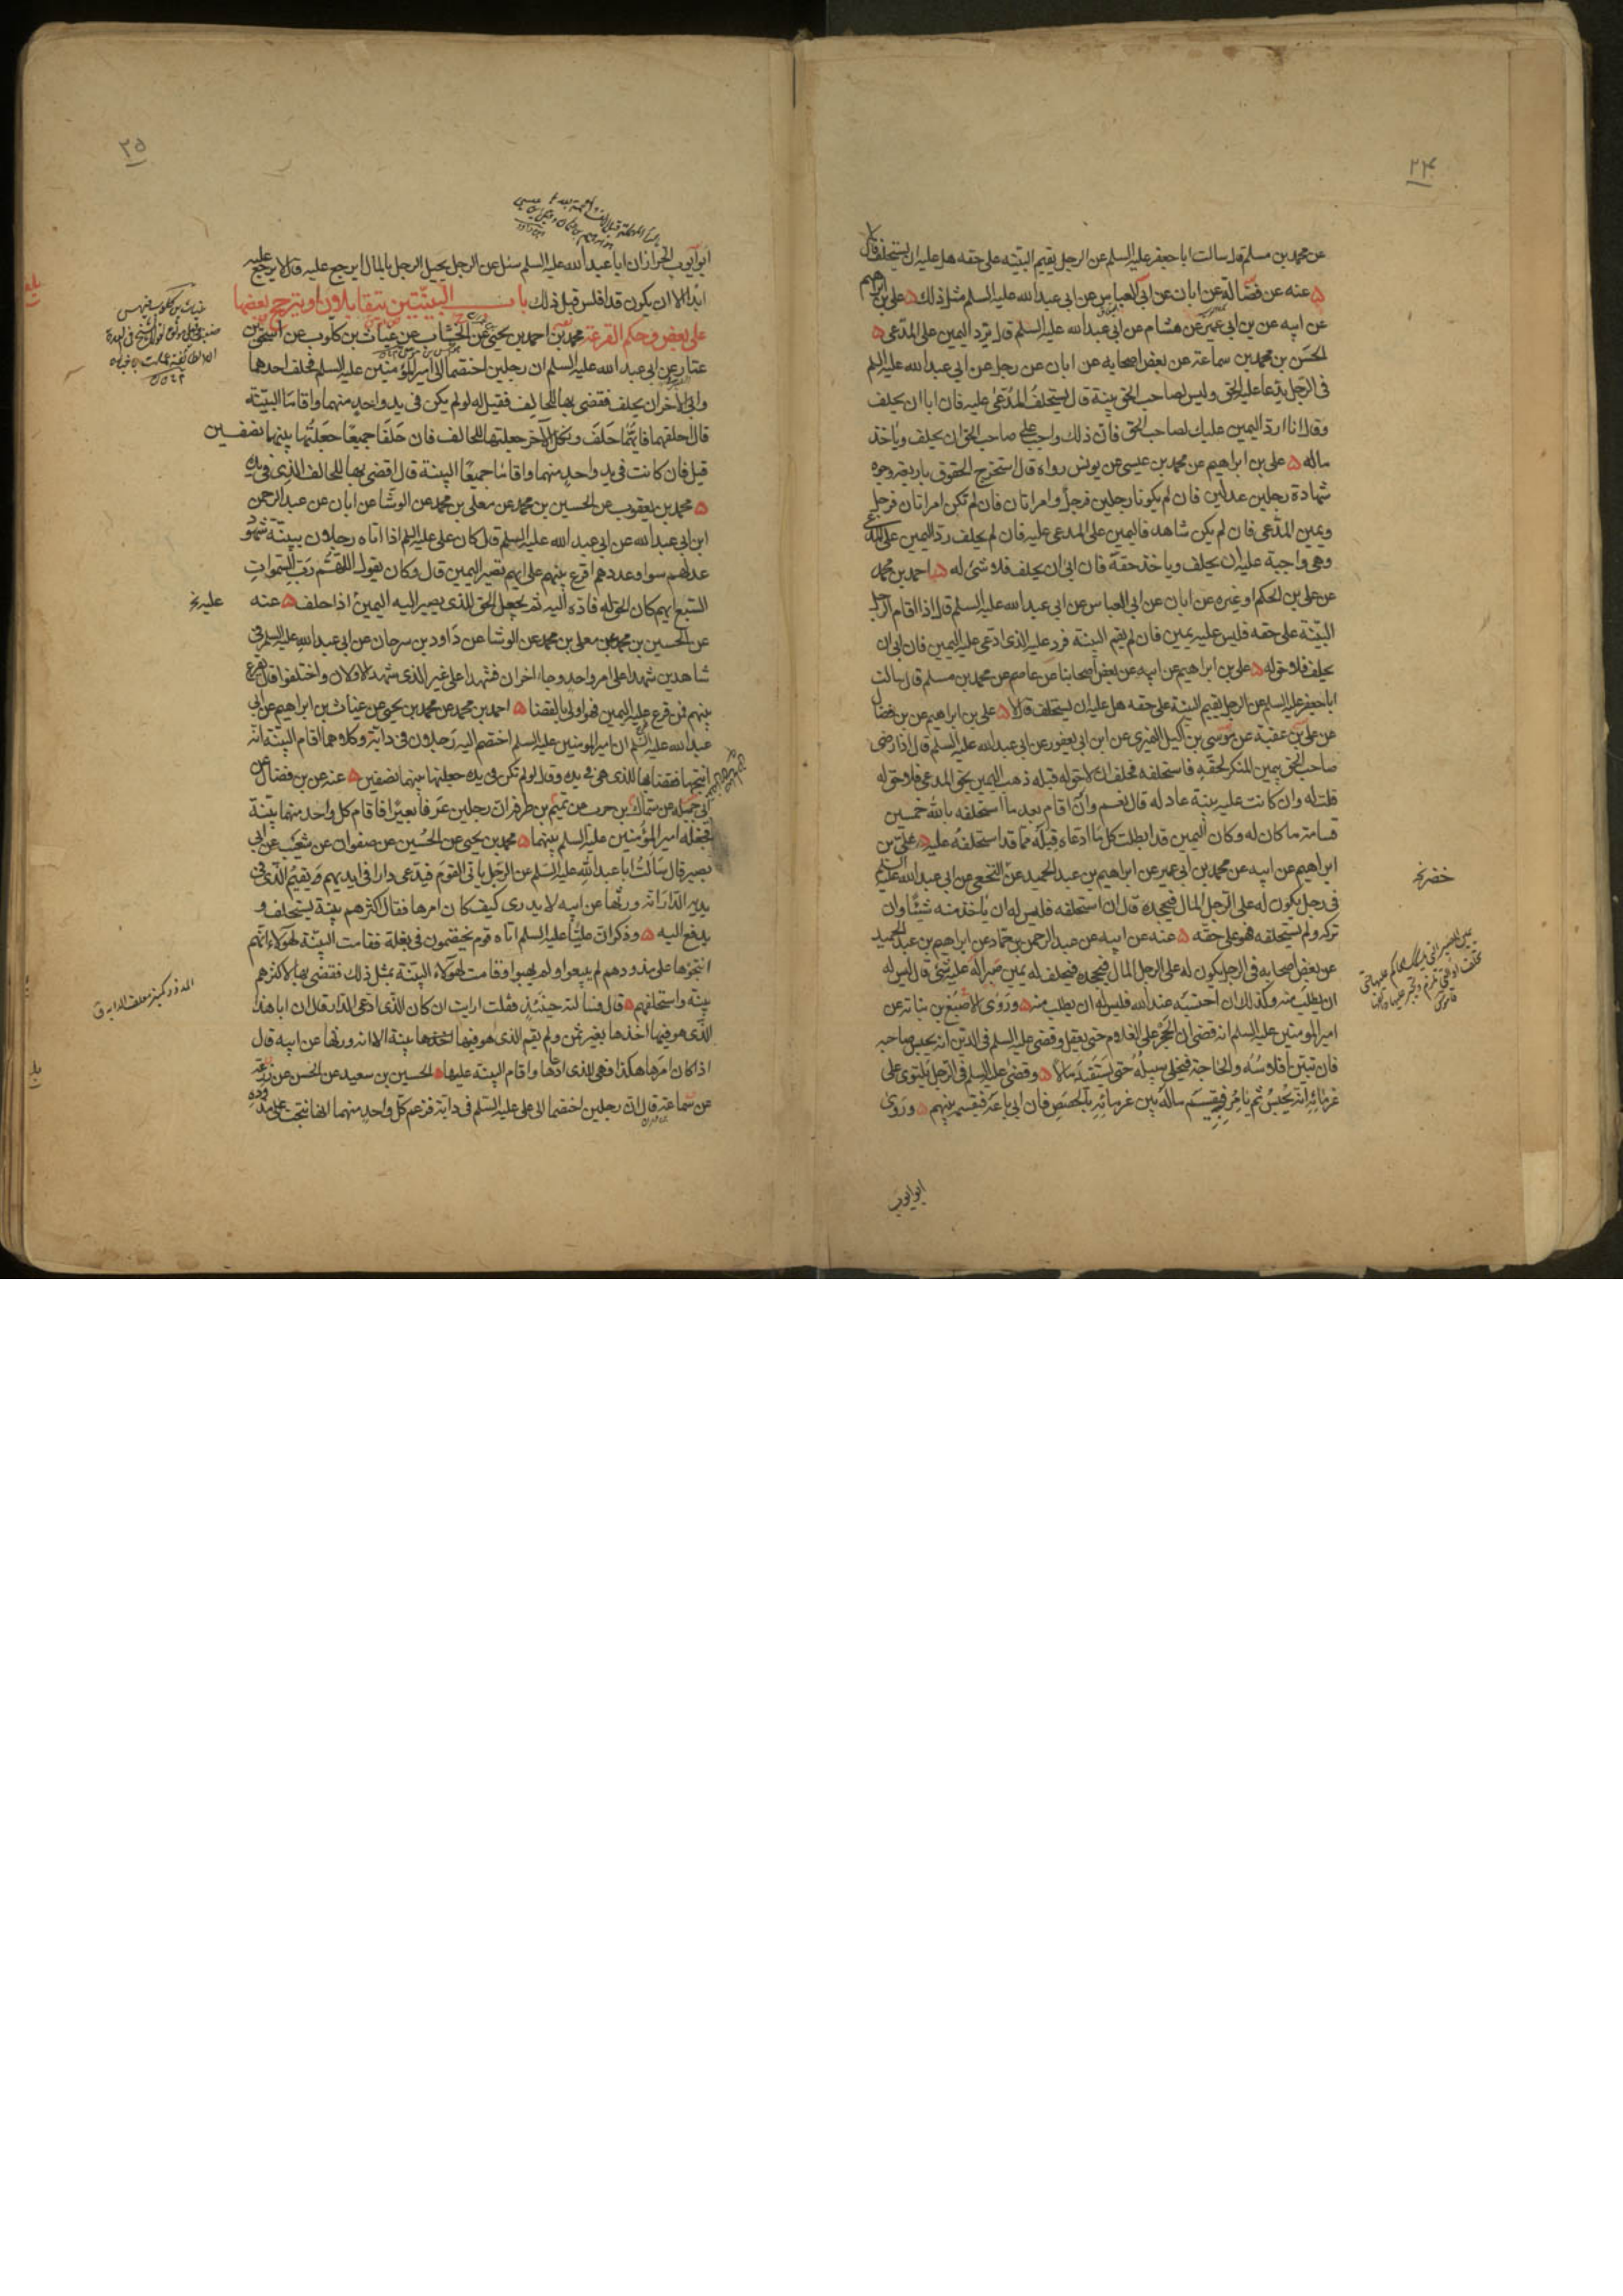 ٢٤
عن محمد بن مسلم قال سالت ابا جعفر عليه السلم عن الرجل يقيم البينه على حقه هل عليه ان يستحلف قال لا
عنه عن فضالة عن ابان عن ابى العباس عن ابى عبد الله عليه السلم مثل ذلك على بن ابراهيم
عن ابيه عن بن ابى عمير عن هشام عن ابى عبد الله عليه السلم قال يرد اليمين على المدعى
الحسن بن محمد بن سماعة عن بعض اصحابه عن ابان عن رجل عن ابى عبد الله عليه السلم
فى الرجل يدعا عليه الحق وليس لصاحب الحق بينة قال يستحلف المدعى عليه فان ابا ان يحلف
وقال انا ارد اليمين عليك لصاحب الحق فان ذلك واجب على صاحب الحق ان يحلف وياخذ
ماله على بن ابراهيم عن محمد بن عيسى عن يونس رواه قال استخرج الحقوق باربعة وجوه
شهادة رجلين عدلين فان لم يكونا رجلين فرجل وامراتان فان لم تكن امراتان فرجل
ويمين المدعى فان لم يكن شاهد فاليمين على المدعى عليه فان لم يحلف رد اليمين على المدعى
وهى واجبة عليه ان يحلف وياخذ حقه فان ابى ان يحلف فلا شئ له احمد بن محمد
عن على بن الحكم او غيره عن ابان عن ابى العباس عن ابى عبد الله عليه السلم قال اذا اقام الرجل
البينة على حقه فليس عليه يمين فان لم يقم البينة فرد عليه الذى ادعى عليه اليمين فان ابى ان
يحلف فلا حق له على بن ابراهيم عن ابيه عن بعض اصحابنا عن عاصم عن محمد بن مسلم قال سالت
ابا جعفر عليه السلم عن الرجل يقيم البينة على حقه هل عليه ان يستحلف قال لا على بن ابراهيم عن بن فضال
عن على بن عقبة عن موسى بن اكيل النميرى عن ابن ابى يعفور عن ابى عبد الله عليه السلم قال اذا رضى
صاحب الحق بيمين المنكر لحقه فاستحلفه فحلف ان لا حق له قبله ذهب اليمين بحق المدعى فلا حق له
قلت له وان كانت عليه بينة عادلة قال نعم وان اقام بعد ما استحلفه بالله خمسين
قسامة ما كان له وكان اليمين قد ابطلت كل ما ادعاه قبله مما قد استحلفه عليه على بن
ابراهيم عن ابيه عن محمد بن ابى عمير عن ابراهيم بن عبد الحميد عن النخعى عن ابى عبد الله عليه السلم
خضر نخ
فى رجل يكون له على الرجل المال فيجحده قال ان استحلفه فليس له ان ياخذ منه شيئا وان
تركه ولم يستحلفه فهو على حقه عنه عن ابيه عن عبد الرحمن بن حماد عن ابراهيم بن عبد الحميد
عن بعض اصحابه فى الرجل يكون له على الرجل المال فيجحده فيحلف له يمين صبر اله عليه شئ قال ليس له
ان يطلب منه وكذلك ان احتسبه عند الله فليس له ان يطلب منه وروى الاصبغ بن نباتة عن
امير المومنين عليه السلم انه قضى ان الحجر على الغلام حتى يعقل وقضى عليه السلم فى الدين انه يحبس صاحبه
فان تبين افلاسه والحاجة فيخلى سبيله حتى يستفيد مالا وقضى عليه السلم فى الرجل يلتوى على
غرمائه انه يحبس ثم يامر فيقسم ماله بين غرمائه بالحصص فان ابى باعه فيقسمه بينهم وروى
ابو ايوب
٢٥
ابو ايوب الخزاز ان ابا عبد الله عليه السلم سئل عن الرجل يحيل الرجل بالمال ايرجع عليه قال لا يرجع عليه
ابدا الا ان يكون قد افلس قبل ذلك باب البينتين يتقابلان او يترجح بعضها
على بعض وحكم القرعة محمد بن احمد بن يحيى عن الخشاب عن غياث بن كلوب عن اسحق بن
عمار عن ابى عبد الله عليه السلم ان رجلين اختصما الى امير المؤمنين عليه السلم فحلف احدهما
وابى الآخر ان يحلف فقضى بها للحالف فقيل له لو لم يكن فى يد واحد منهما واقاما البينة
قال احلفهما فايهما حلف ونكل الآخر جعلتها للحالف فان حلفا جميعا جعلتها بينهما نصفين
قيل فان كانت فى يد واحد منهما واقاما جميعا البينة قال اقضى بها للحالف الذى فى يده
محمد بن يعقوب عن الحسين بن محمد عن معلى بن محمد عن الوشا عن ابان عن عبد الرحمن
ابن ابى عبد الله عن ابى عبد الله عليه السلم قال كان على عليه السلم اذا اتاه رجلان ببينة شهود
عدلهم سوا وعددهم اقرع بينهم على ايهم تصير اليمين قال وكان يقول اللهم رب السموات
السبع ايهم كان الحق له فاده اليه ثم يجعل الحق للذى يصير اليه اليمين اذا حلف عنه
عليه نخ
عن الحسين بن محمد عن معلى بن محمد عن الوشا عن داود بن سرحان عن ابى عبد الله عليه السلم فى
شاهدين شهدا على امر واحد وجاء اخران فشهدا على غير الذى شهد الاولان واختلفوا قال يقرع
بينهم فمن قرع عليه اليمين فهو اولى بالقضا احمد بن محمد عن محمد بن يحيى عن غياث بن ابراهيم عن ابى
عبد الله عليه السلم ان امير المومنين عليه السلم اختصم اليه رجلان فى دابة وكلاهما اقام البينة انه
انتجها فقضا بها للذى هى فى يده وقال لو لم تكن فى يده جعلتها بينهما نصفين عنه عن بن فضال عن
ابى جميلة عن سماك بن حرب عن تميم بن طرفة ان رجلين عرفا بعيرا فاقام كل واحد منهما بينة
فجعله امير المؤمنين عليه السلم بينهما محمد بن يحيى عن الحسين عن صفوان عن شعيب عن ابى
بصير قال سالت ابا عبد الله عليه السلم عن الرجل ياتى القوم فيدعى دارا فى ايديهم ويقيم الذى فى
يديه الدار انه ورثها عن ابيه لا يدرى كيف كان امرها فقال اكثرهم بينة يستحلف و
يدفع اليه وذكر ان عليا عليه السلم اتاه قوم يختصمون فى بغلة فقامت البينة لهولاء انهم
انتجوها على مذودهم لم يبيعوا ولم يهبوا وقامت لهولاء البينة بمثل ذلك فقضى بها لاكثرهم
بينة واستحلفهم قال فسالته حينئذ فقلت ارايت ان كان الذى ادعى الدار قال ان ابا هذا
الذى هو فيها اخذها بغير ثمن ولم يقم الذى هو فيها بينة الا انه ورثها عن ابيه قال
اذا كان امرها هكذا فهى للذى ادعاها واقام البينة عليها الحسين بن سعيد عن الحسن عن زرعة
عن سماعة قال ان رجلين اختصما الى على عليه السلم فى دابة فزعم كل واحد منهما انها نتجت على مذوده